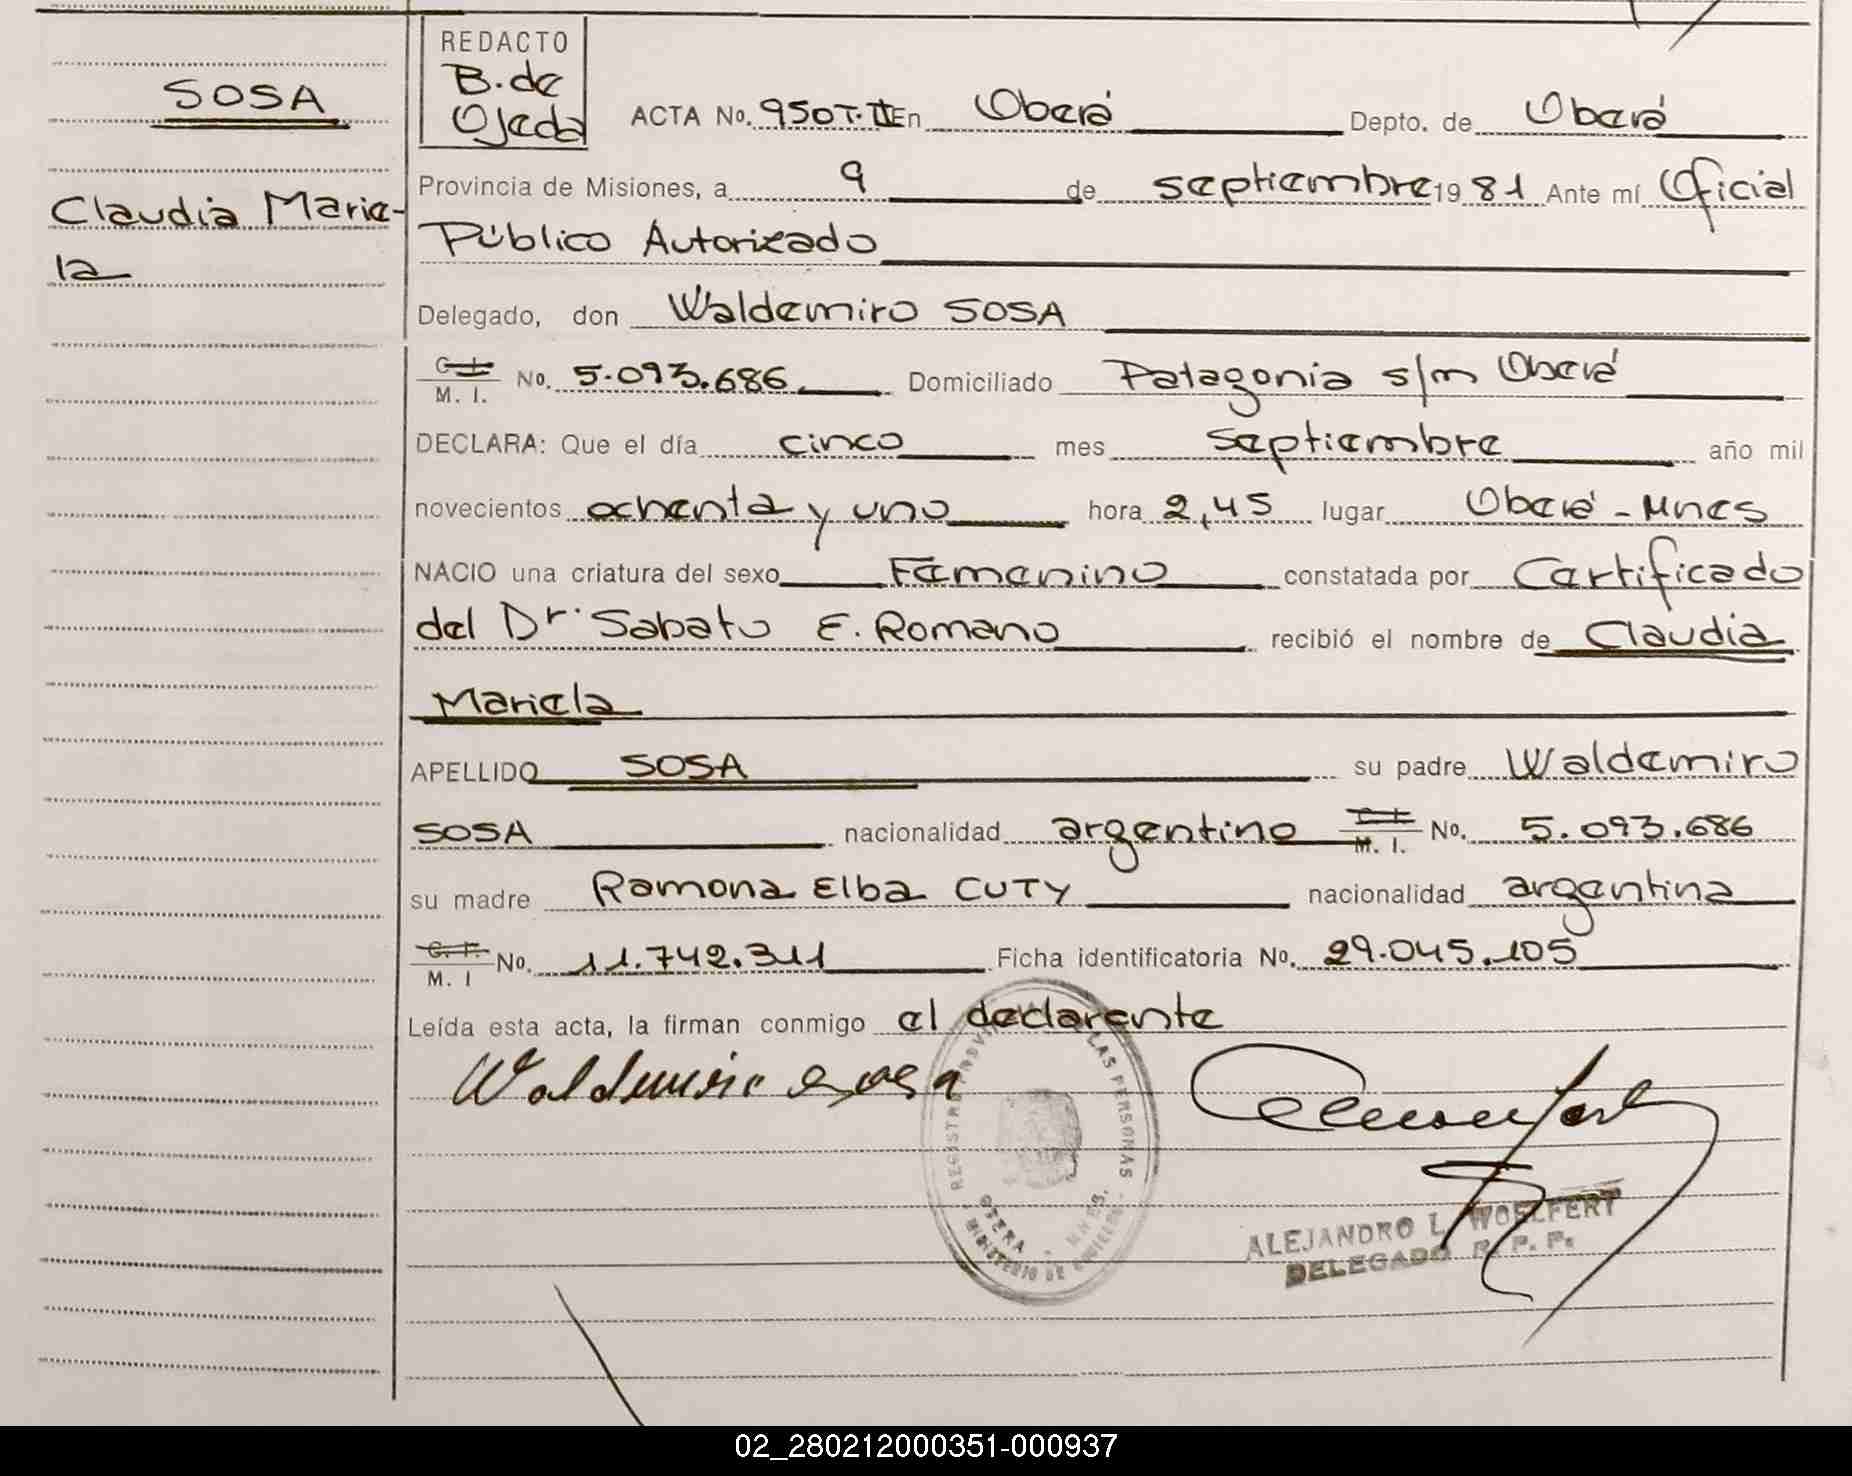 SOSA
Claudia Marie-
la
REDACTO
B. de
Ojeda
ACTA No. 950 T. II En Oberá Depto. de Oberá
Provincia de Misiones, a 9 de septiembre 19 81 Ante mí Oficial
Público Autorizado
Delegado, don Waldemiro SOSA
C. I. M. I. No. 5.093.686 Domiciliado Patagonia s/m Oberá
DECLARA: Que el día cinco mes septiembre año mil
novecientos ochenta y uno hora 2,45 lugar Oberá - Mnes
NACIO una criatura del sexo Femenino constatada por Certificado
del Dr. Sabato E. Romano recibió el nombre de Claudia
Mariela
APELLIDO SOSA su padre Waldemiro
SOSA nacionalidad argentino C. I. M. I. No. 5.093.686
su madre Ramona Elba CUTY nacionalidad argentina
C. I. M. I No. 11.742.311 Ficha identificatoria No. 29.045.105
Leída esta acta, la firman conmigo el declarente
Waldemiro Sosa
REGISTRO PROV. LAS PERSONAS
OBERA - MNES.
MINISTERIO DE
ALEJANDRO L. WOELFERT
DELEGADO R. P. P.
02_280212000351-000937